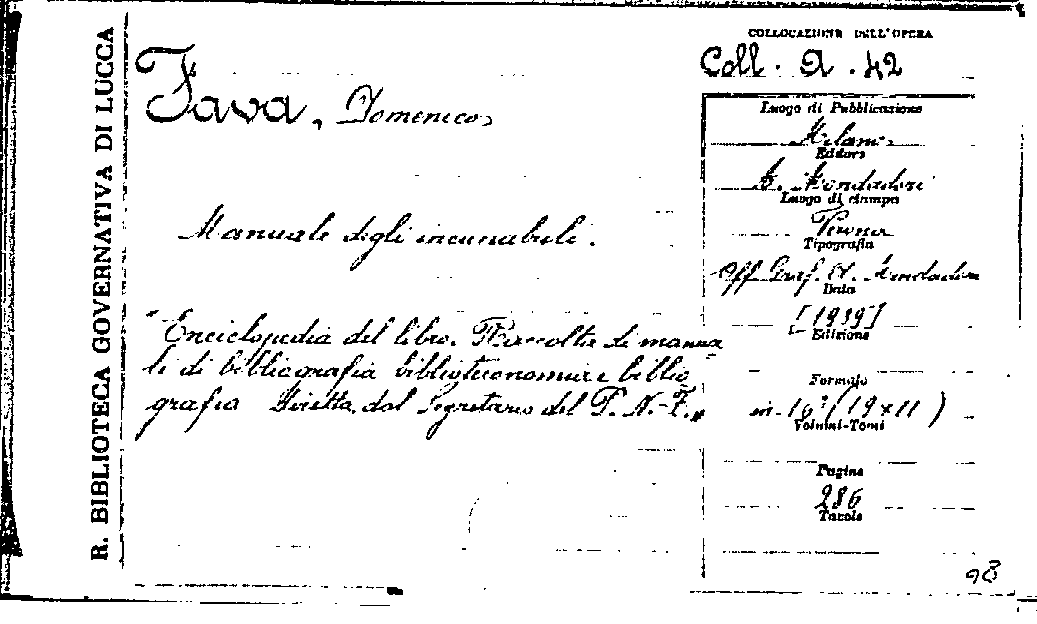 R. BIBLIOTECA GOVERNATIVA DI LUCCA
Fava, Domenico,
Manuale degli incunabuli.
"Enciclopedia del libro. Raccolta di manua
li di bibliografia biblioteconomia e biblio
grafia diretta dal Segretario del P. N. F."
COLLOCAZIONE DELL'OPERA
Coll. A. 42
Luogo di Pubblicazione
Milano
Editore
A. Mondadori
Luogo di stampa
Verona
Tipografia
Off. Graf. A. Mondadori
Data
[1939]
Edizione
Formato
in-16° (19x11)
Volumi-Tomi
Pagine
286
Tavole
98